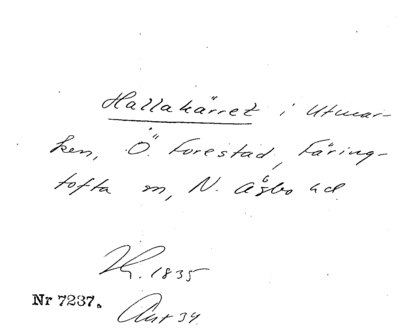 Hallakärret i Utmar-
ken, Ö. Forestad, Färing-
tofta sn, N. Åsbo hd.
K. 1835
Nr 7237. Akt 34